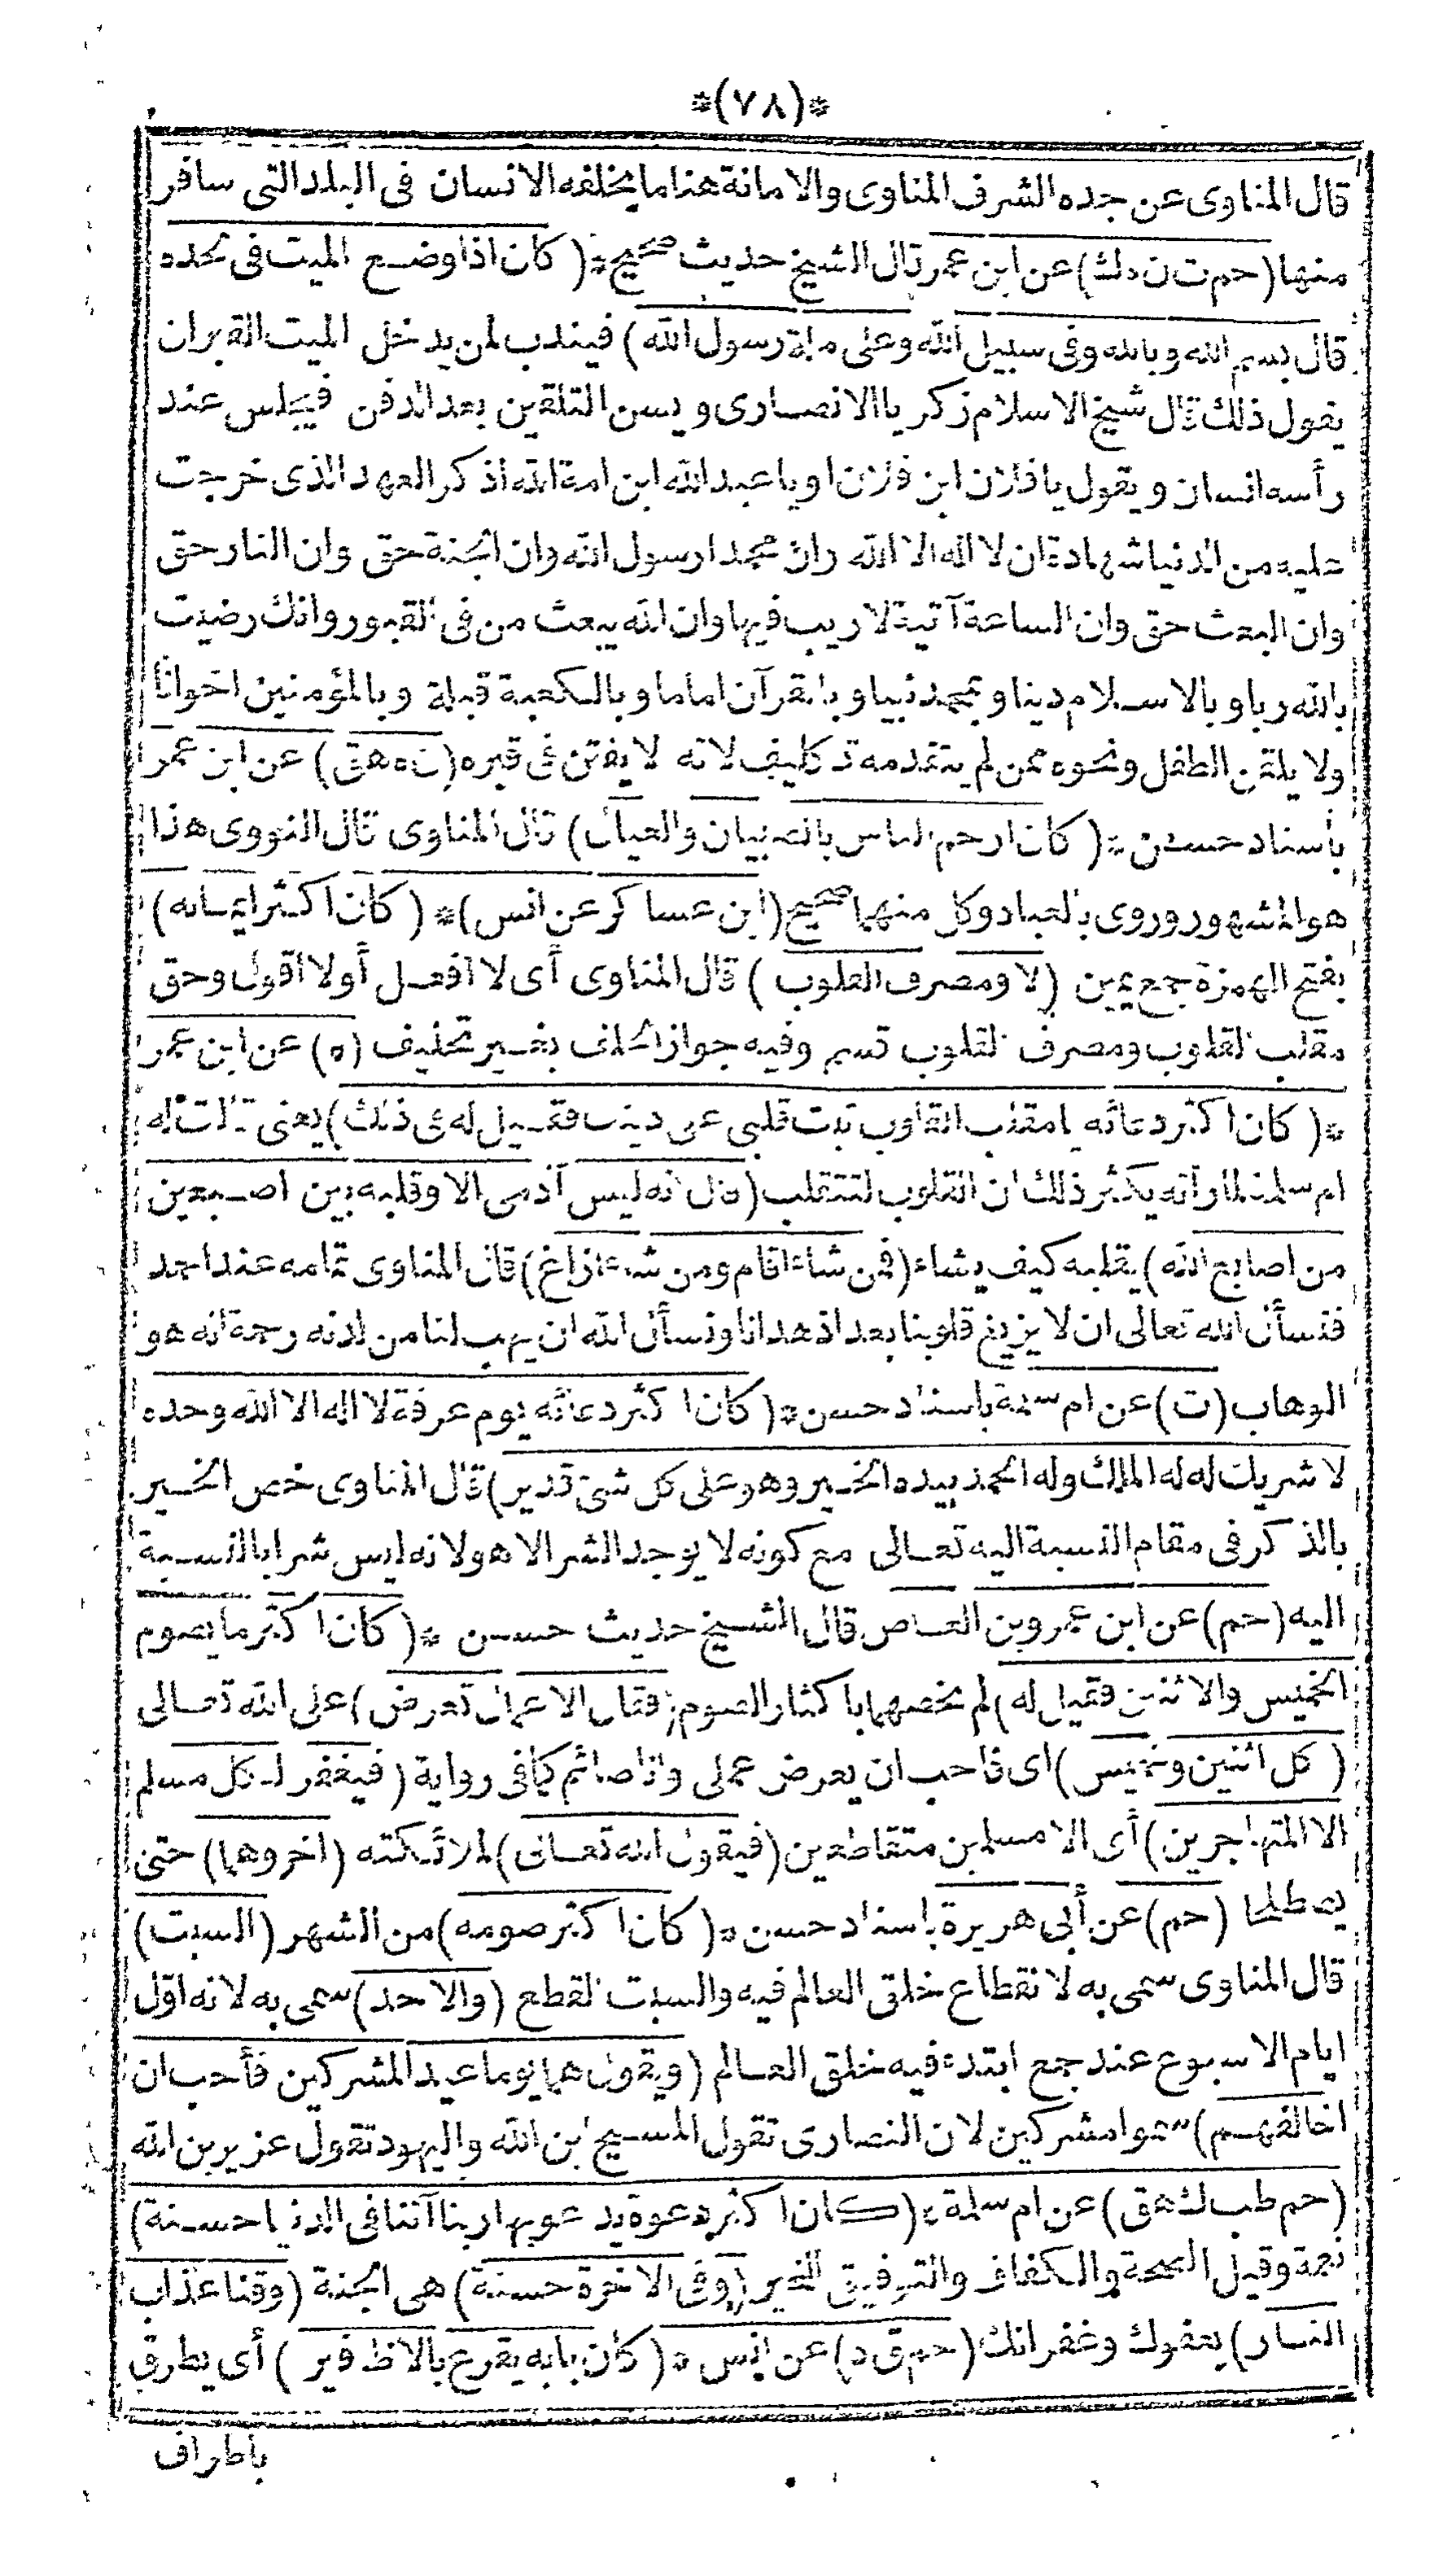 *(٧٨)*
قال المناوى عن جده الشرف المناوى والامانة هنا ما يخلفه الانسان فى البلد التى سافر
منها (حم ت ن ه ك) عن ابن عمر قال الشيخ حديث صحيح * (كان اذا وضع الميت فى لحده
قال بسم الله وبالله وفى سبيل الله وعلى ملة رسول الله) فيندب لمن يدخل الميت القبر ان
يقول ذلك قال شيخ الاسلام زكريا الانصارى ويسن التلقين بعد الدفن فيجلس عند
رأسه انسان ويقول يا فلان ابن فلان او يا عبد الله ابن امة الله اذكر العهد الذى خرجت
عليه من الدنيا شهادة ان لا اله الا الله وان محمدا رسول الله وان الجنة حق وان النار حق
وان البعث حق وان الساعة آتية لا ريب فيها وان الله يبعث من فى القبور وانك رضيت
بالله ربا وبالاسلام دينا وبمحمد نبيا وبالقرآن اماما وبالكعبة قبلة وبالمؤمنين اخوانا
ولا يلقن الطفل ونحوه ممن لم يتقدمه تكليف لانه لا يفتن فى قبره (ن ه هق) عن ابن عمر
باسناد حسن * (كان ارحم الناس بالصبيان والعيال) قال المناوى قال النووى هذا
هو المشهور وروى بالعباد وكل منهما صحيح (ابن عساكر عن انس) * (كان اكثر ايمانه)
بفتح الهمزة جمع يمين (لا ومصرف القلوب) قال المناوى أى لا افعل أو لا اقول وحق
مقلب القلوب ومصرف القلوب قسم وفيه جواز الحلف بغير تحليف (ه) عن ابن عمر
* (كان اكثر دعائه يا مقلب القلوب ثبت قلبى على دينك فقيل له فى ذلك) يعنى قالت له
ام سلمة لما رأته يكثر ذلك ان القلوب لتتقلب (قال انه ليس آدمى الا وقلبه بين اصبعين
من اصابع الله) يقلبه كيف يشاء (فمن شاء اقام ومن شاء ازاغ) قال المناوى تمامه عند احمد
فنسأل الله تعالى ان لا يزيغ قلوبنا بعد اذ هدانا ونسأل الله ان يهب لنا من لدنه رحمة انه هو
الوهاب (ت) عن ام سلمة باسناد حسن * (كان اكثر دعائه يوم عرفة لا اله الا الله وحده
لا شريك له له الملك وله الحمد بيده الخير وهو على كل شئ قدير) قال المناوى خص الخير
بالذكر فى مقام النسبة اليه تعالى مع كونه لا يوجد الشر الا هو لانه ليس شرا بالنسبة
اليه (حم) عن ابن عمرو بن العاص قال الشيخ حديث حسن * (كان اكثر ما يصوم
الخميس والاثنين فقيل له) لم تخصهما باكثار الصوم (فقال الاعمال تعرض) على الله تعالى
(كل اثنين وخميس) اى فاحب ان يعرض عملى وانا صائم كما فى رواية (فيغفر لكل مسلم
الا المتهاجرين) أى الا مسلمين متقاطعين (فيقول الله تعالى) لملائكته (اخروهما) حتى
يصطلحا (حم) عن أبى هريرة باسناد حسن * (كان اكثر صومه) من الشهر (السبت)
قال المناوى سمى به لانقطاع خلق العالم فيه والسبت القطع (والاحد) سمى به لانه اول
ايام الاسبوع عند جمع ابتدء فيه خلق العالم (ويقول هما يوما عيد المشركين فأحب ان
اخالفهم) سموا مشركين لان النصارى تقول المسيح ابن الله واليهود تقول عزير بن الله
(حم طب ك هق) عن ام سلمة * (كان اكثر دعوة يدعو بها ربنا آتنا فى الدنيا حسنة)
نعمة وقيل الصحة والكفاف والتوفيق للخير (وفى الاخرة حسنة) هى الجنة (وقنا عذاب
النار) بعفوك وغفرانك (حم ق د) عن انس * (كان بابه يقرع بالاظافير) أى يطرق
باطراف